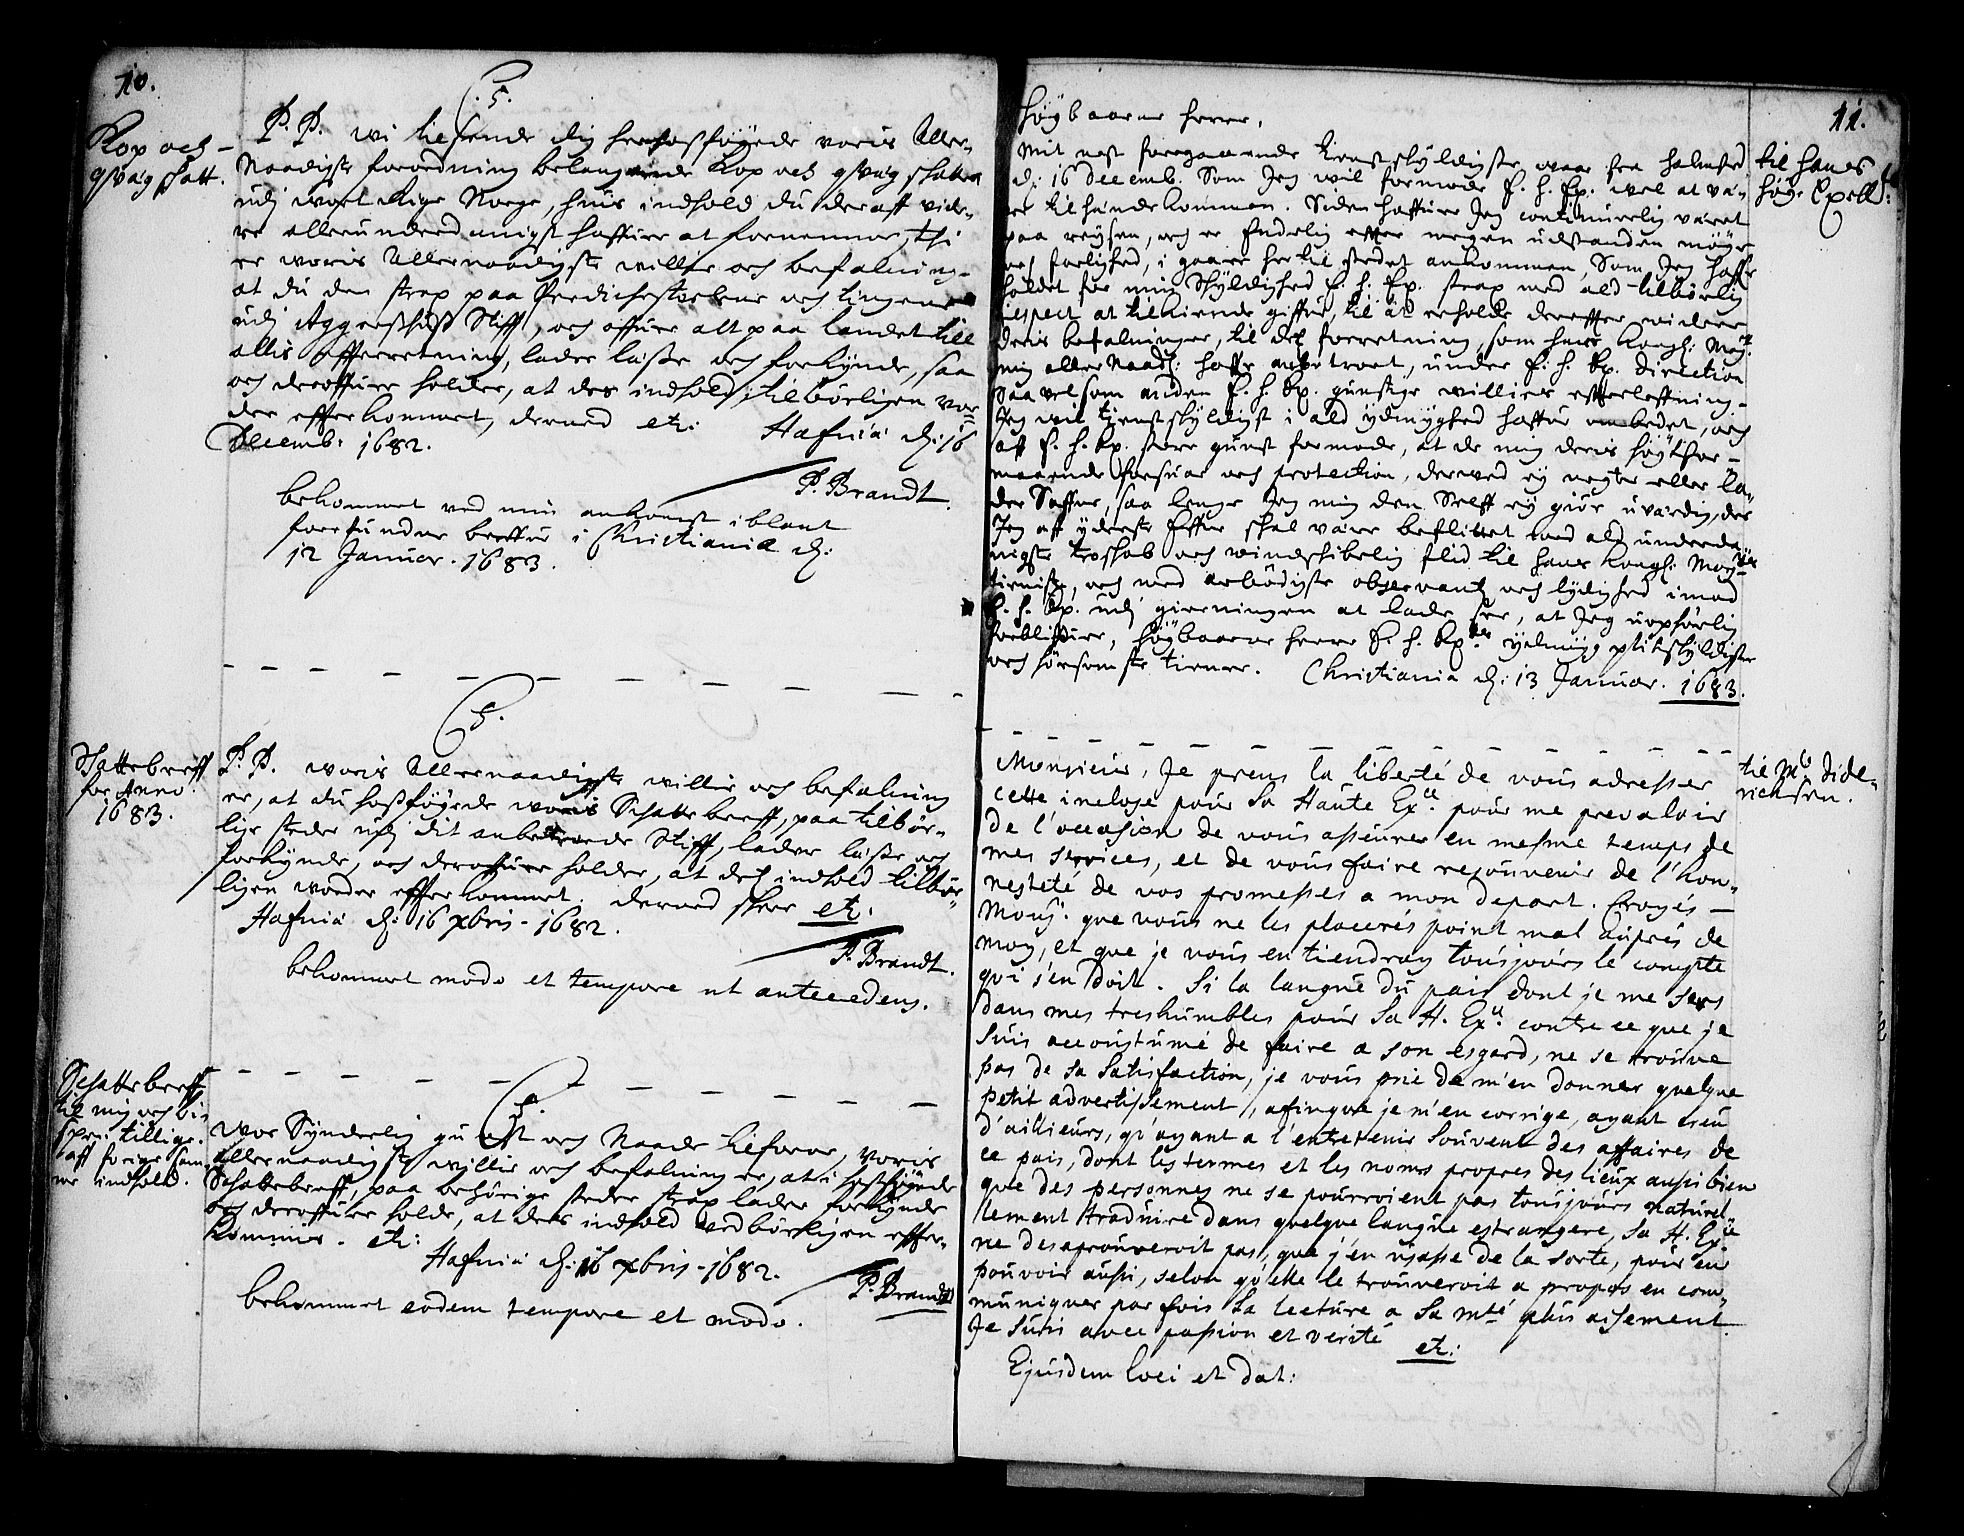 10.
Kop och
qvæg skatt.
C. 5.
P. P. wi tilsende dig herhosføyede voris Aller-
Naadigste forordning belangende Kop och qvæg skatten
udj wort Rige Norge, huis indhold du deraff vide-
re allerunderdanigst haffuer at fornemme, thi
er woris Allernaadigste willie och befalning
at du den strax paa Predichestoelene och tingene
udj Aggershuß Stifft, och offuer alt paa landet till
allis effterretning, lader læße och forkynde, saa
och deroffuer holder, at des indhold tilbørligen vor-
der effterkommet, dermed etc: Hafniæ d: 16
Decemb: 1682.
P. Brandt.
bekommet ved min ankomst iblant
forefundne breffue i Christiania d:
12 Januar. 1683.
C. 5.
Skattebreff
for Anno
1683.
P. P. woris Allernaadigste willie och befalning
er, at du hoßføyede woris Schattebreff, paa tilbør-
lige steder udj dit anbetroede Stifft, lader læße och
forkynde, och deroffuer holder, at des indhold tilbør-
ligen worder effterkommet. dermed skeer etc:
Hafniæ d: 16 xbris - 1682.
P. Brandt.
bekommet modo et tempore ut antecedens.
C. 5.
Schattebreff
til mig och bi-
spen tillige.
aff forige sam-
me indhold.
Wor Synderlig gunst och Naade tilforne, voris
allernaadigste willie och befalning er, at i hoßføyede
Schattebreff, paa behørige steder strax lader forkynde
och deroffuer holde, at dets indhold vedbørligen effter-
kommis. etc:
Hafniæ d: 16 xbris - 1682.
P. Brandt
bekommet eodem tempore et modo.
11.
til hans
høye Excell:
Høybaarne herre,
Mit nest foregaaende tienstskyldigste, waar fra Halmsted
d: 16 Decemb. Som Jeg wil formode E. h. Ex. wel at væ-
re til hænde kommen. Siden haffuer Jeg continuerlig været
paa reysen, och er Endelig effter megen udstanden møye
och farlighed, i gaar her til stedet ankommen, Som Jeg haffr
holdet for min Skyldighed E. h. Ex. strax med ald tilbørlig
respect at tilkiende giffue, til at erholde dereffter videre
deris befalninger, til des forretning, som hans Kongl: May:t
mig aller Naad: haffr anbetroet, under E. h. Ex. direction
Saavelsom anden E. h. Ex. gunstige willies effterleffning.
Jeg wil tienstskyldigst i ald ydmyghed haffue ombedet, och
aff E. h. Ex. store gunst formode, at de mig deris høytfor-
maaende forsuar och protection, derved ey negter eller la-
der Saffne, saa lenge Jeg mig den Selff ey giør uværdig, der
Jeg aff yderste Effne skal være beflittet med ald underda-
nigste troskab och windskibelig flid til hans Kongl: May:ts
tieniste, och med ærbødigste observantz och lydighed imod
E. h. Ex. udj gierningen at lade see, at Jeg uophørlig
forbliffuer, Høybaarne herre E. h. Ex:ces ydmyg plictskyldigste
och hørsomste tienere. Christiania d: 13 Januar. 1683.
til Mr. Dide-
richsen.
Monsieur, Je prens la liberté de vous adresser
cette inclose pour Sa Haute Ex:ce pour me prevaloir
de l'occasion de vous asseurer en mesme temps de
mes services, et de vous faire resouvenir de l'hon-
nesteté de vos promesses a mon depart. Croyés
Mons:r que vous ne les placerés point mal aupres de
moy, et que je vous en tiendray tousjours le compte
qui s'en doit. Si la langue du pais dont je me sers
dans mes treshumbles pour Sa H. Ex:ce contre ce que je
suis accoustumé de faire a son esgard, ne se trouve
pas de sa satisfaction, je vous prie de m'en donner quelque
petit advertissement, afinque je m'en corrige, ayant creu
d'ailleurs, qu'ayant a l'entretenir souvent des affaires de
ce pais, dont les termes et les noms propres des lieux aussi bien
que des personnes ne se pourroient pas tousjours naturel-
lement traduire dans quelque langue estrangere, Sa H. Ex:ce
ne desaprouveroit pas, que j'en usasse de la sorte, pour en
pouvoir aussi, selon qu'elle le trouveroit a propos en com-
muniquer par fois la lecture a Sa Mté plus aisement
Je suis avec passion et verité etc:
Ejusdem loci et dat: